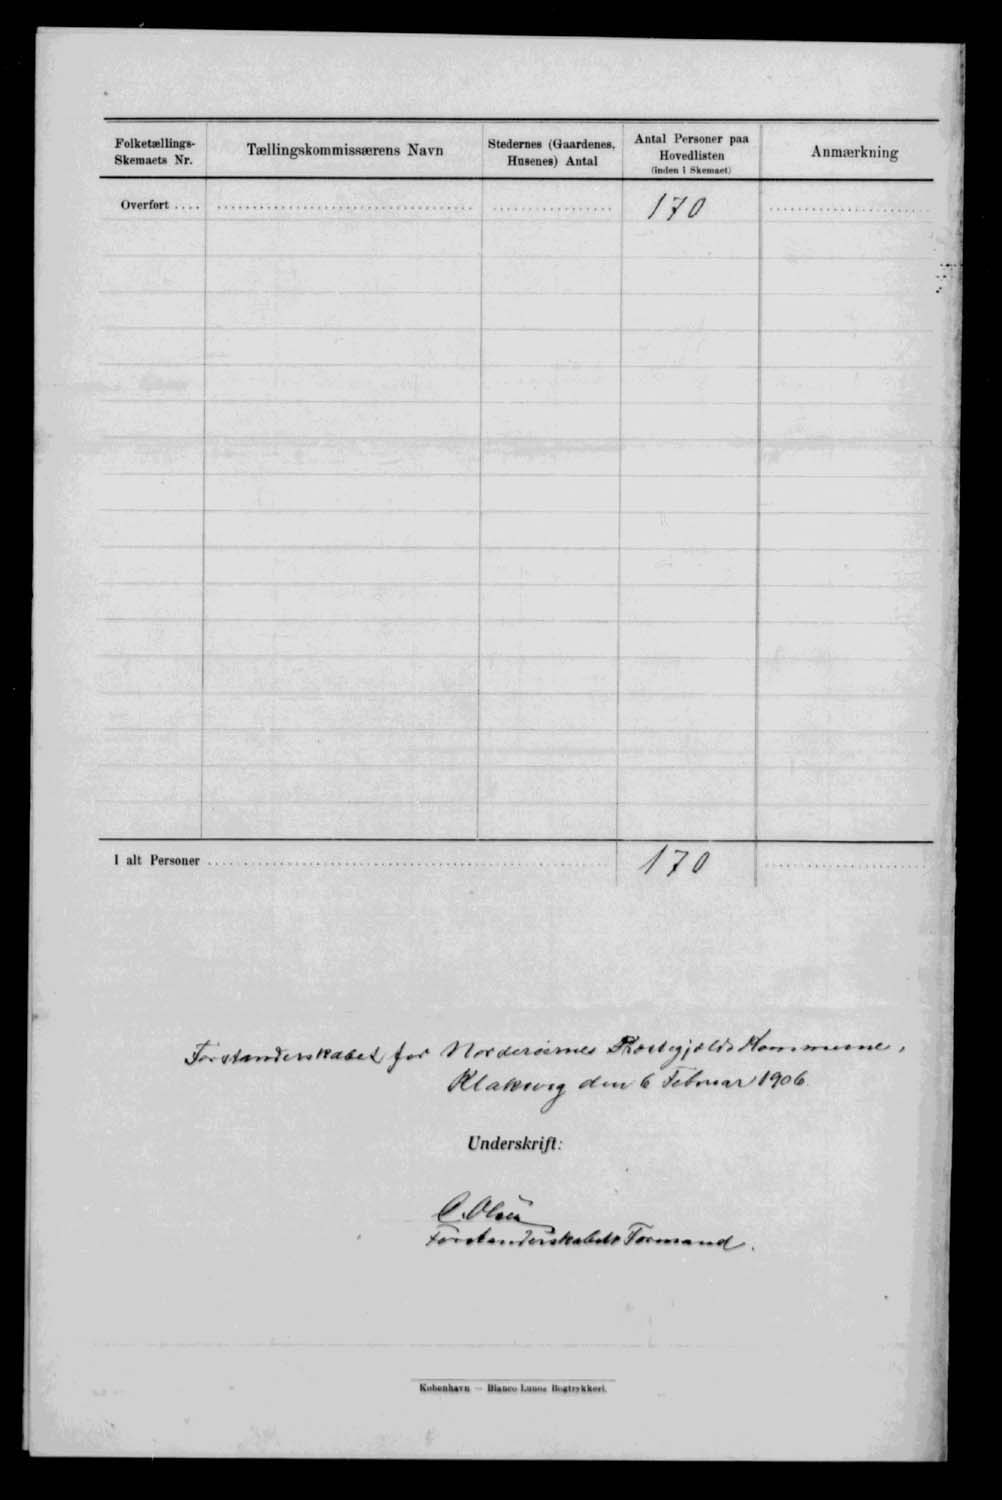 Folketællings-
Skemaets Nr.
Tællingskommissærens Navn
Stedernes (Gaardenes,
Husenes) Antal
Antal Personer paa
Hovedlisten
(inden i Skemaet)
Anmærkning
Overført .... 170
I alt Personer 170
Forstanderskabet for Norderøernes Præstegjælds Kommune,
Klaksvig den 6 Februar 1906.
Underskrift:
O. Olsen
Forstanderskabets Formand.
København — Bianco Lunos Bogtrykkeri.